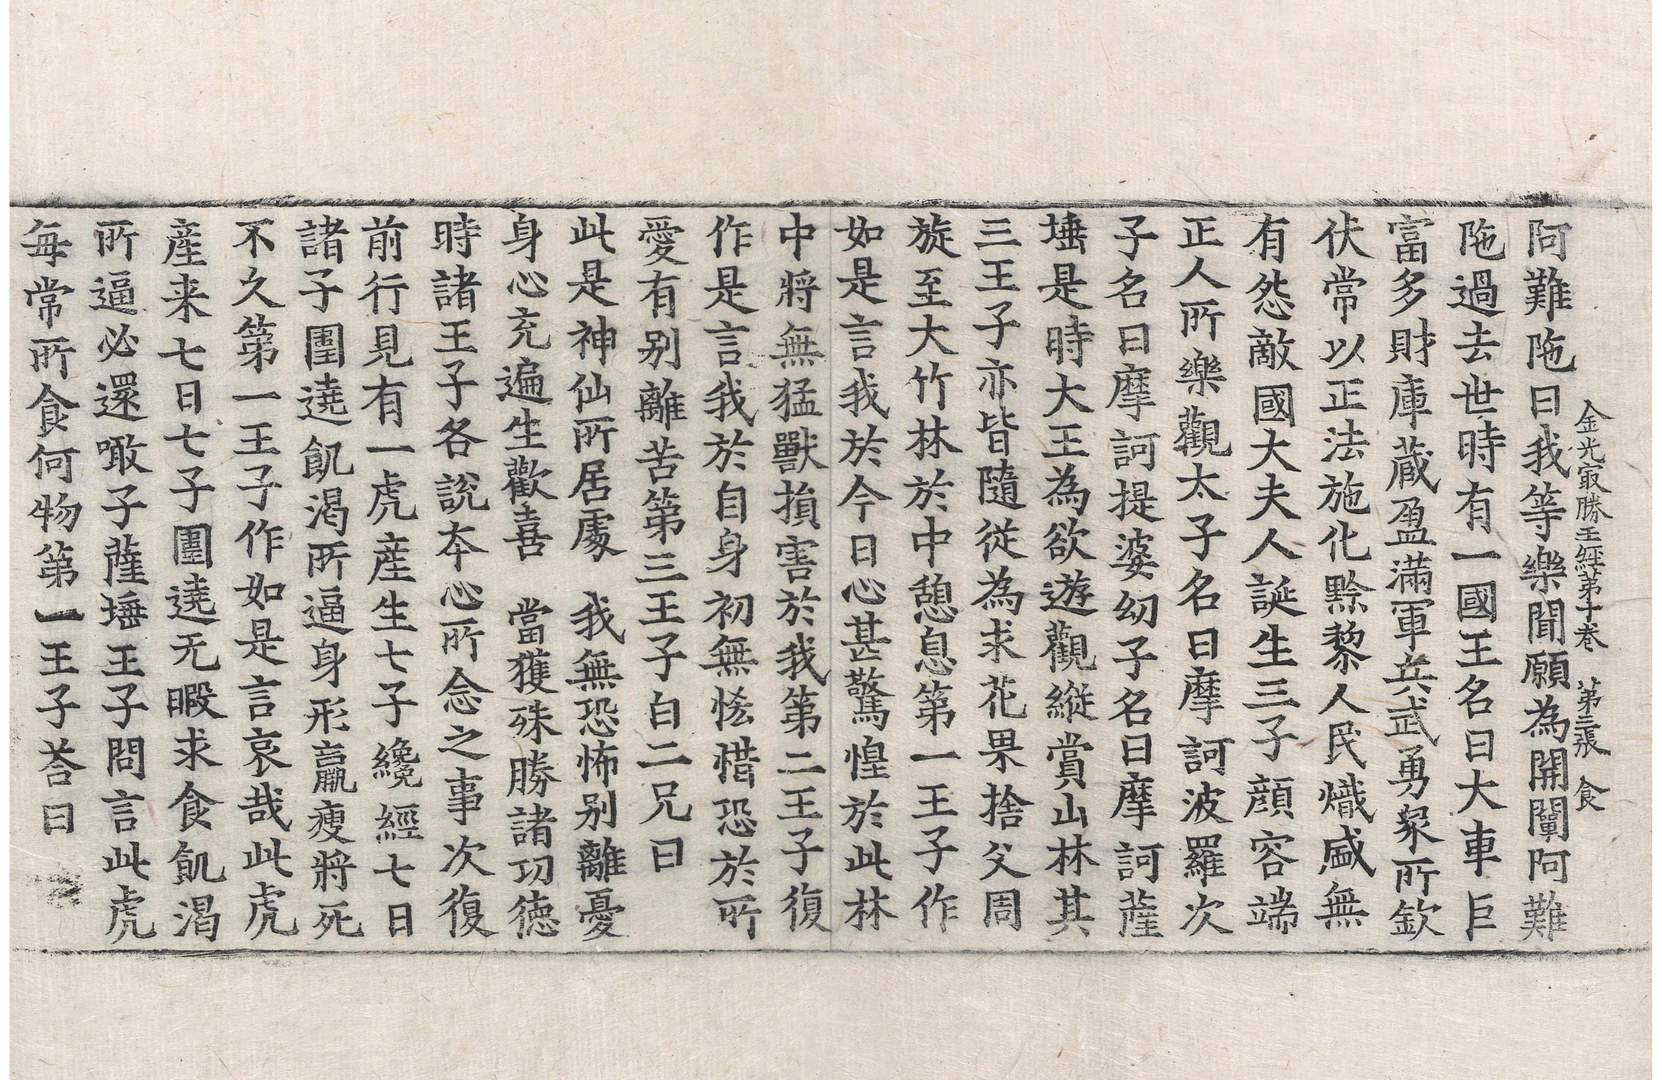 金光冣勝王經第十卷　第三張　食
阿難陁曰我等樂聞願為開闡阿難
陁過去世時有一國王名曰大車巨
富多財庫藏盈滿軍兵武勇衆所欽
伏常以正法施化黔黎人民熾盛無
有怨敵國大夫人誕生三子顔容端
正人所樂觀太子名曰摩訶波羅次
子名曰摩訶提婆幼子名曰摩訶薩
埵是時大王為欲遊觀縱賞山林其
三王子亦皆隨從為求花果捨父周
旋至大竹林於中憩息第一王子作
如是言我於今日心甚驚惶於此林
中將無猛獸損害於我第二王子復
作是言我於自身初無恡惜恐於所
愛有别離苦第三王子白二兄曰
此是神仙所居處　我無恐怖别離憂
身心充遍生歡喜　當獲殊勝諸功徳
時諸王子各說夲心所念之事次復
前行見有一虎產生七子纔經七日
諸子圍遶飢渴所逼身形羸瘦將死
不久第一王子作如是言哀哉此虎
產来七日七子圍遶无暇求食飢渴
所逼必還噉子薩埵王子問言此虎
每常所食何物第一王子荅曰